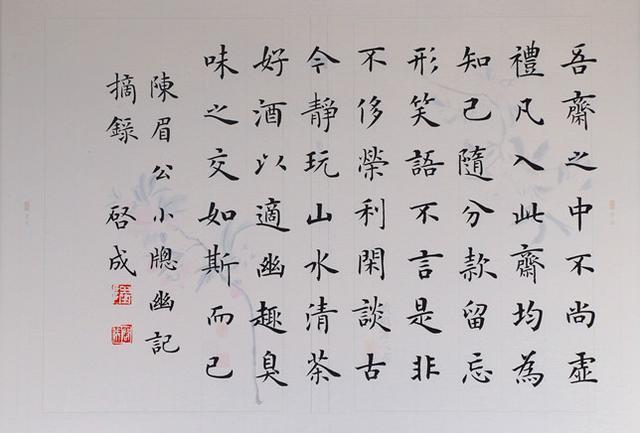 吾齋之中不尚虛
禮凡入此齋均為
知己隨分款留忘
形笑語不言是非
不侈榮利閑談古
今靜玩山水清茶
好酒以適幽趣臭
味之交如斯而已
陳眉公小牕幽記
摘錄 啓成